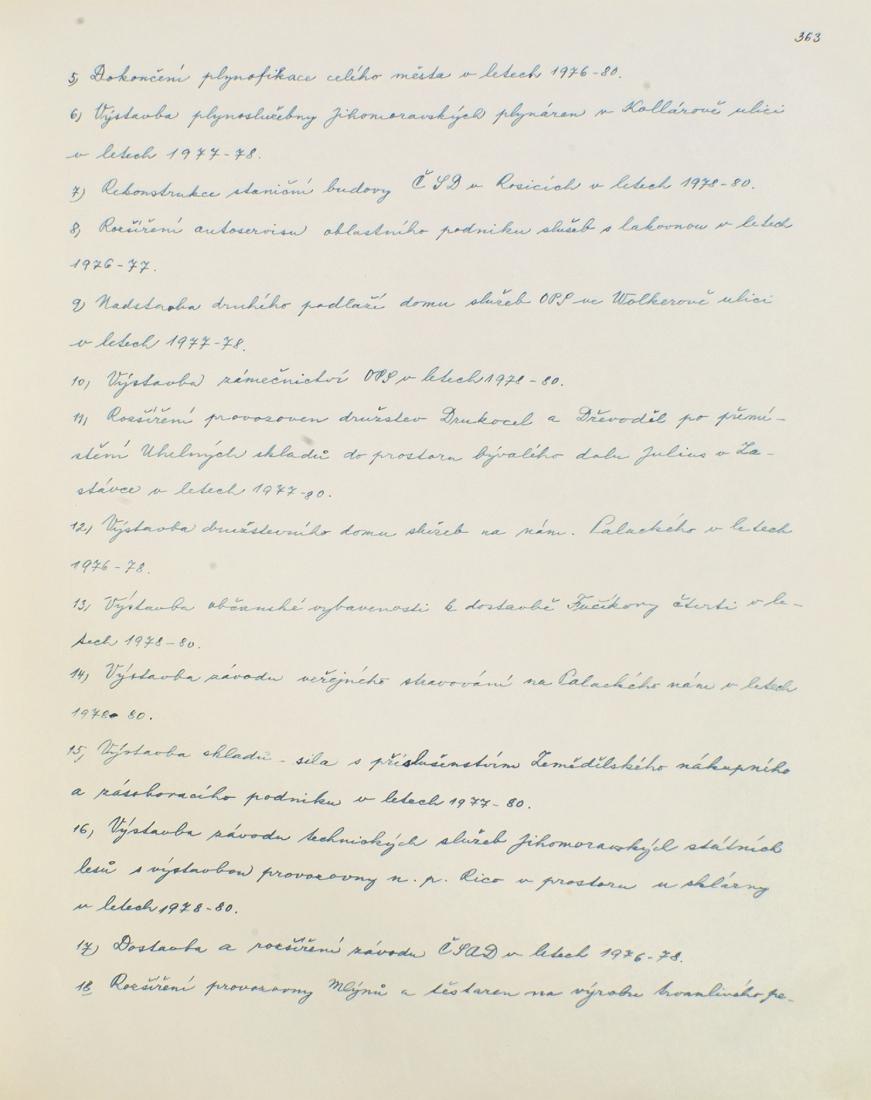 363
5, Dokončení plynofikace celého města v letech 1976-80.
6, Výstavba plynoslužebny Jihomoravských plynáren v Kollárově ulici
v letech 1977-78.
7) Rekonstrukce staniční budovy ČSD v Rosicích v letech 1978-80.
8, Rozšíření autoservisu oblastního podniku služeb s lakovnou v letech
1976-77.
9) Nadstavba druhého podlaží domu služeb OPS ve Wolkerově ulici
v letech 1977-78.
10, Výstavba zámečnictví OPS v letech 1978-80.
11, Rozšíření provozoven družstev Drukocel a Dřevoděl po přemí-
stění Uhelných skladů do prostoru bývalého dolu Julius v Za-
stávce v letech 1977-80.
12, Výstavba družstevního domu služeb na nám. Palackého v letech
1976-78.
13, Výstavba občanské vybavenosti k dostavbě Fučíkovy čtvrti v le-
tech 1978-80.
14, Výstavba závodu veřejného stravování na Palackého nám v letech
1978-80.
15, Výstavba skladu - sila s příslušenstvím Zemědělského nákupního
a zásobovacího podniku v letech 1977-80.
16, Výstavba závodu technických služeb Jihomoravských státních
lesů s výstavbou provozovny n. p. Rico v prostoru u sklárny
v letech 1978-80.
17) Dostavba a rozšíření závodu ČSAD v letech 1976-78.
18 Rozšíření provozovny Mlýnů a těstáren na výrobu trvanlivého pe-